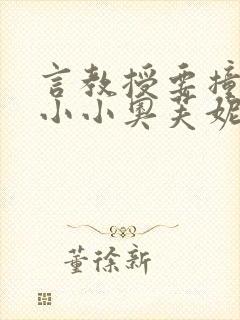 言教授要撞
小小奥芙妮
董徐新